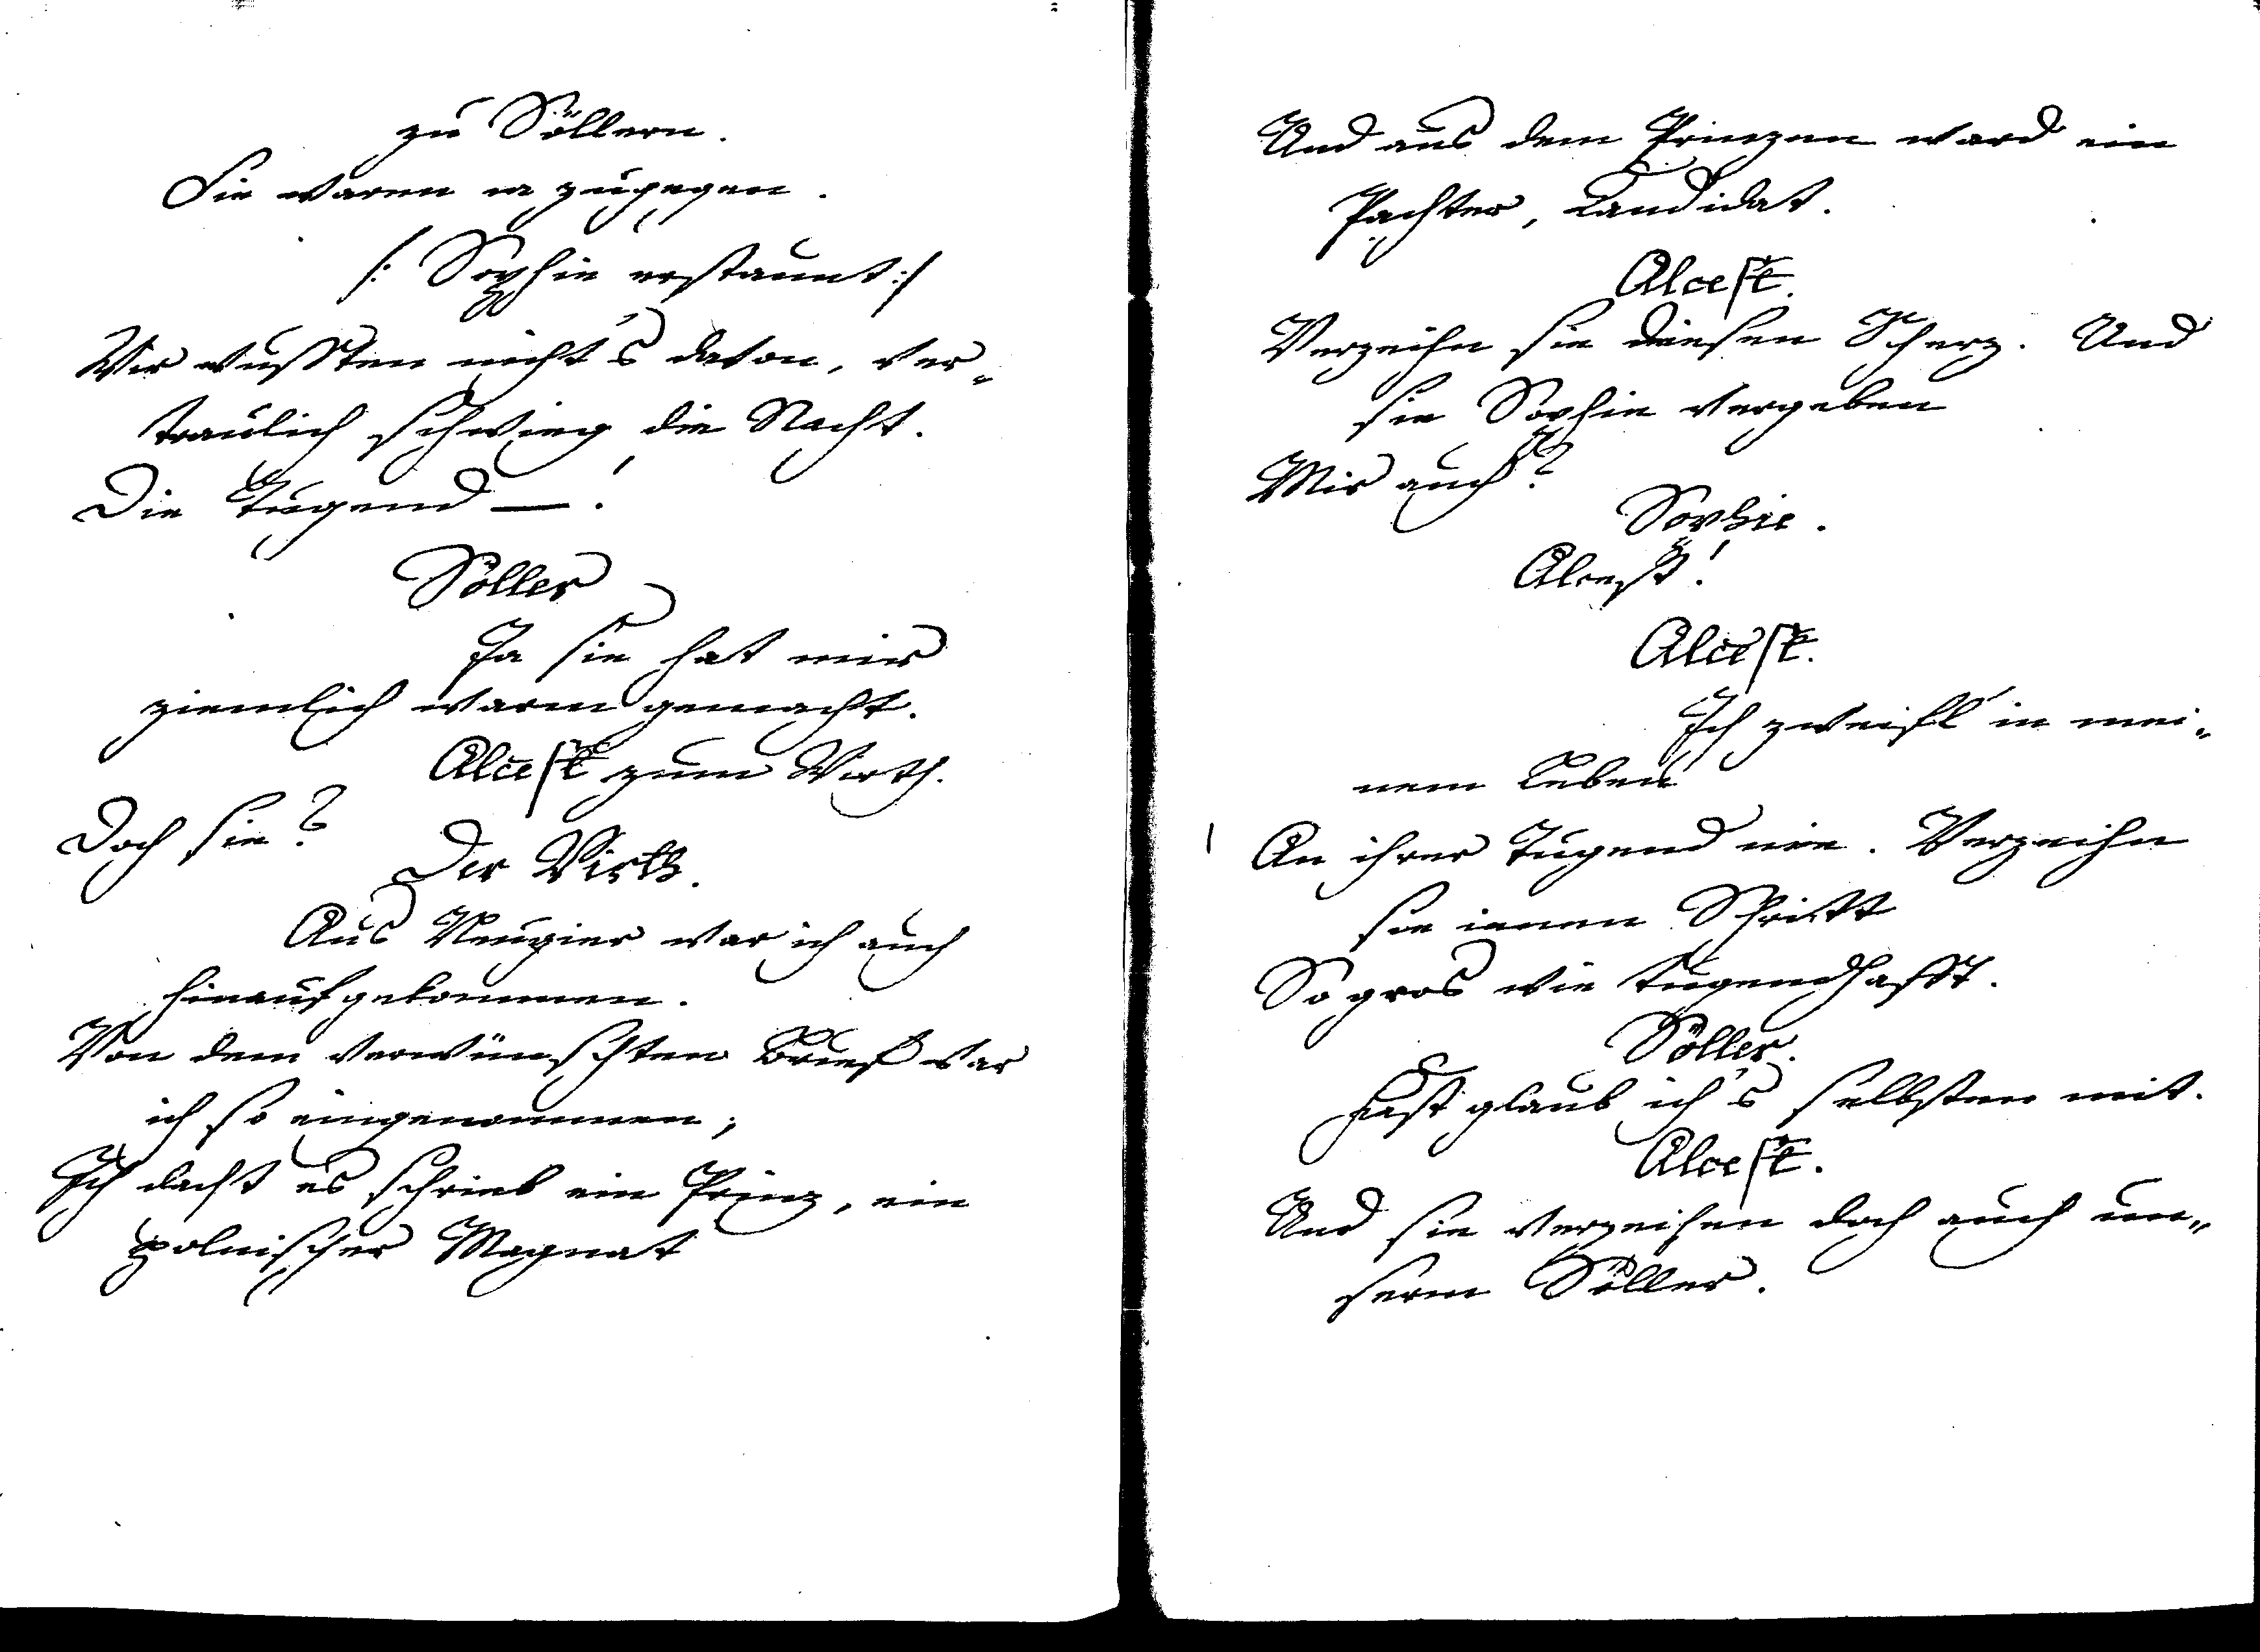 zu Söllern.
Sie waren ia zugegen.
/: Sophie erstaunt :/
Wir wussten nicht's davon, ver-
traulich schwieg die Nacht.
Die Tugend —!
Söller
Ja sie hat mir
ziemlich warm gemacht.
Alcest zum Wirth.
Doch sie?
Der Wirth.
Aus Neugier war ich auch
hinaufgekommen.
Von dem verwünschten Brief war
ich so eingenommen;
Ich dacht es schrieb ein Prinz, ein
polnischer Magnat
Und aus dem Prinzen ward ein
Pachter, Kandidat.
Alcest.
Verzeihn sie diesen Scherz. Und
sie Sophie vergeben
Mir auch?
Sophie.
Alcest!
Alcest.
Ich zweifl' in mei-
nem Leben
An ihrer Tugend nie. Verzeihn
sie ienen Schritt
So gros wie tugendhafft.
Söller.
Fast glaub ich's selbsten mit.
Alcest.
Und sie verzeihen doch auch un-
serm Söller.